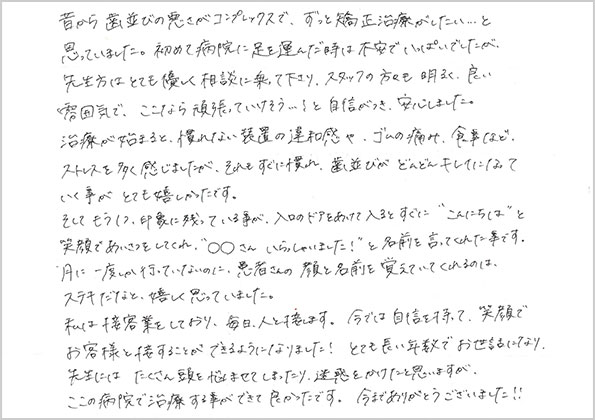 昔から 歯並びの悪さがコンプレックスで、ずっと矯正治療がしたい…と
思っていました。初めて病院に足を運んだ時は不安でいっぱいでしたが、
先生方はとても優しく相談に乗って下さり、スタッフの方々も明るく、良い
雰囲気で、ここなら頑張っていけそう…！と自信がつき、安心しました。
治療が始まると、慣れない装置の違和感や、ゴムの痛み、食事など、
ストレスを多く感じましたが、それもすぐに慣れ、歯並びがどんどんキレイになって
いく事がとても嬉しかったです。
そしてもう1つ、印象に残っている事が、入口のドアをあけて入るとすぐに"こんにちは"と
笑顔であいさつをしてくれ、"○○さん いらっしゃいました！"と名前を言ってくれた事です。
月に一度しか行っていないのに、患者さんの顔と名前を覚えていてくれるのは、
ステキだなと、嬉しく思っていました。
私は接客業をしており、毎日、人と接します。今では自信を持って、笑顔で
お客様と接することができるようになりました！とても長い年数でお世話になり、
先生には たくさん頭を悩ませてしまったり、迷惑をかけたと思いますが、
ここの病院で治療する事ができて良かったです。今までありがとうございました!!